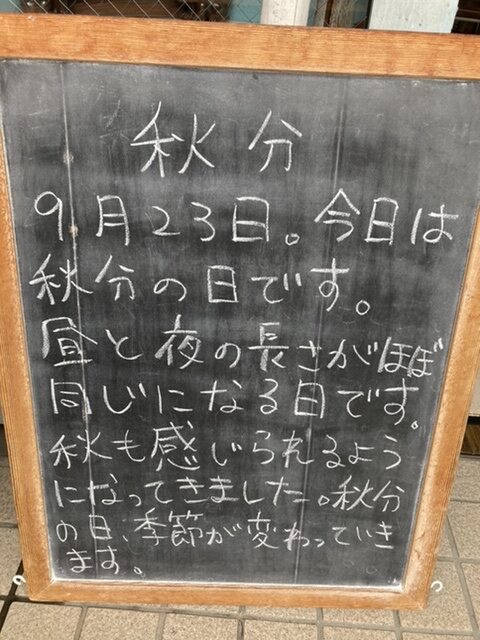 秋分
9月23日。今日は
秋分の日です。
昼と夜の長さがほぼ
同じになる日です。
秋も感じられるよう
になってきました。秋分
の日、季節が変わっていき
ます。